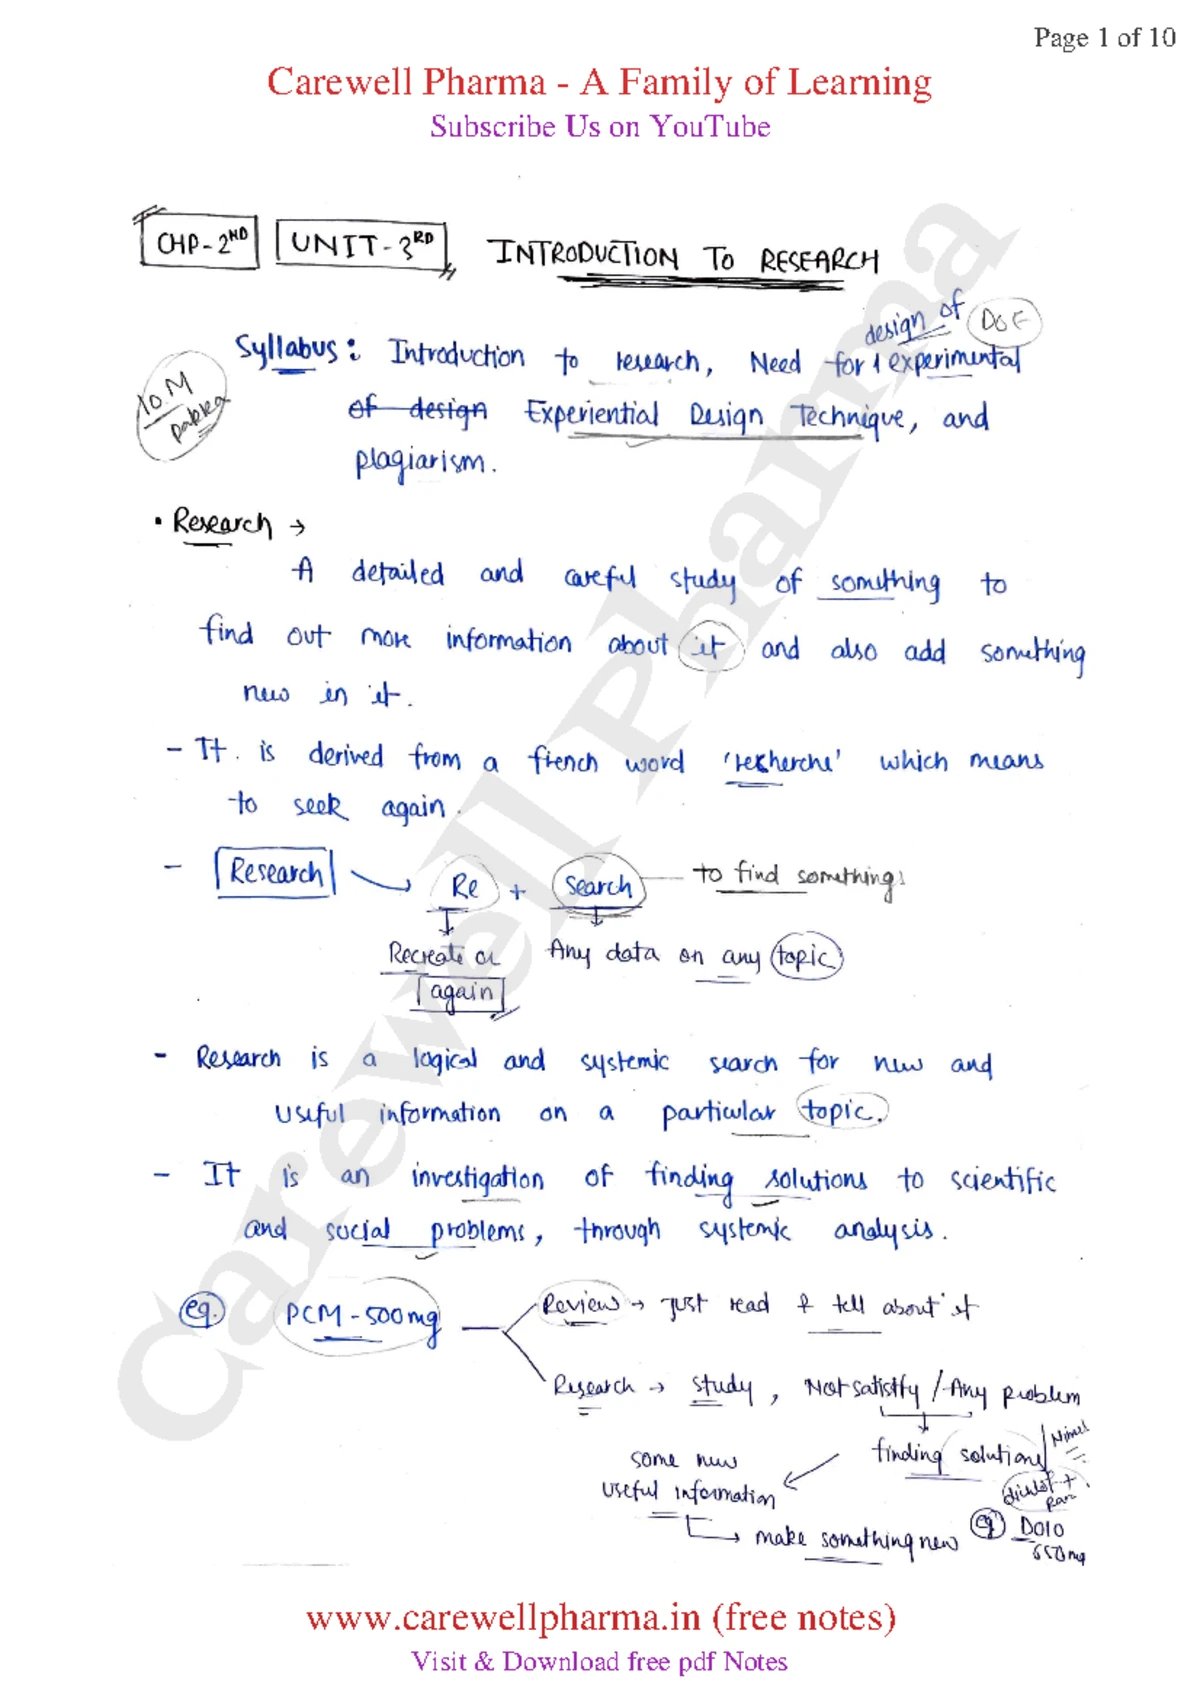 Page 1 of 10
Carewell Pharma - A Family of Learning
Subscribe Us on YouTube
CHP-2ND UNIT-3RD INTRODUCTION TO RESEARCH
design of DOE
Syllabus: Introduction to research, Need for experimental
10.M
pakka
of design Experiential Design Technique, and
plagiarism.
• Research →
A detailed and careful study of something to
find out more information about it and also add something
new in it.
- It is derived from a french word 'recherche' which means
to seek again.
- Research Re + Search to find something
Recreate or Any data on any topic
again
- Research is a logical and systemic search for new and
useful information on a particular topic.
- It is an investigation of finding solutions to scientific
and social problems, through systemic analysis.
eg. PCM-500mg
Review → just read & tell about it
Research → study, Not satistfy / Any problem
finding solutions
some new
useful information
make something new eg Dolo
650mg
Carewell Pharma
www.carewellpharma.in (free notes)
Visit & Download free pdf Notes